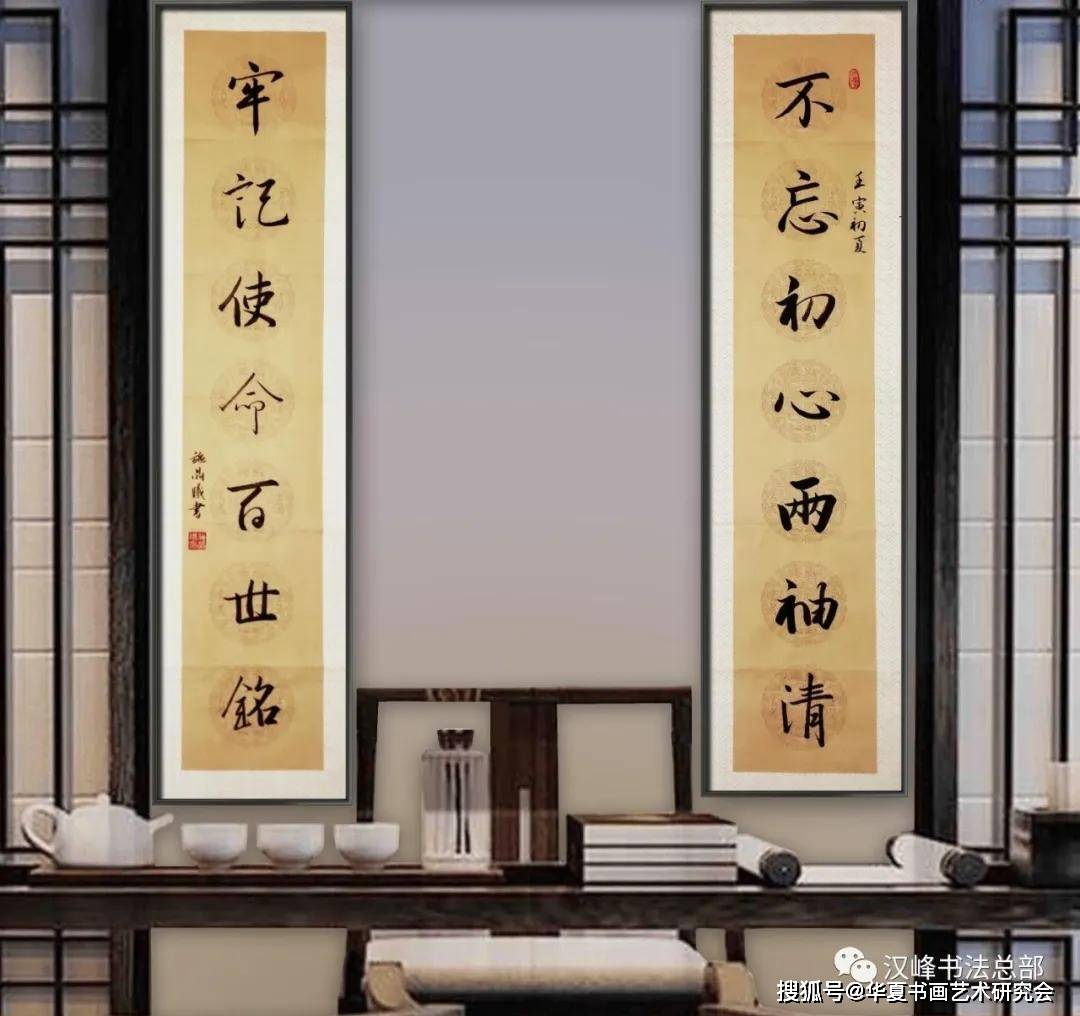 不忘初心两袖清
壬寅初夏
牢記使命百世銘
曦书
汉峰书法总部
搜狐号@华夏书画艺术研究会